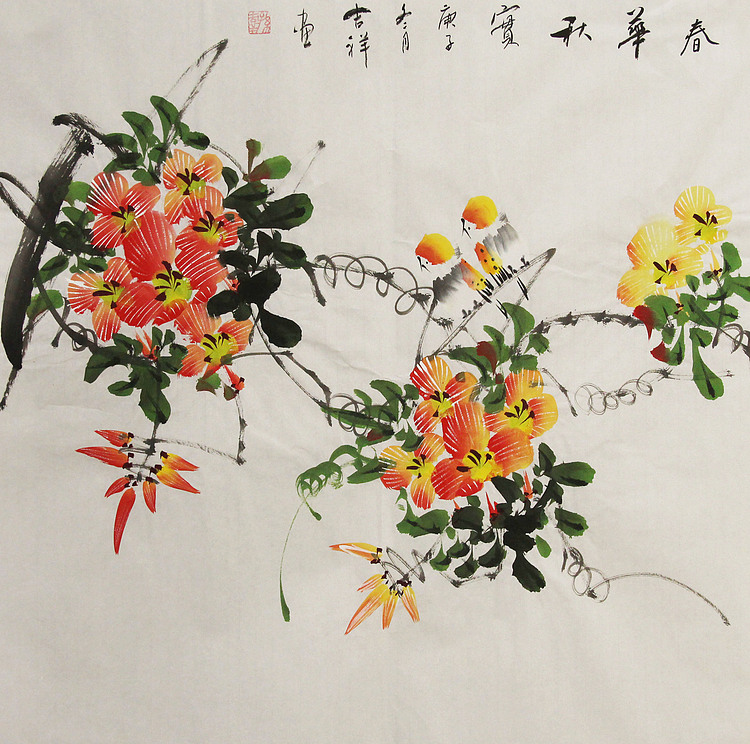 春華秋實庚子冬月吉祥畫